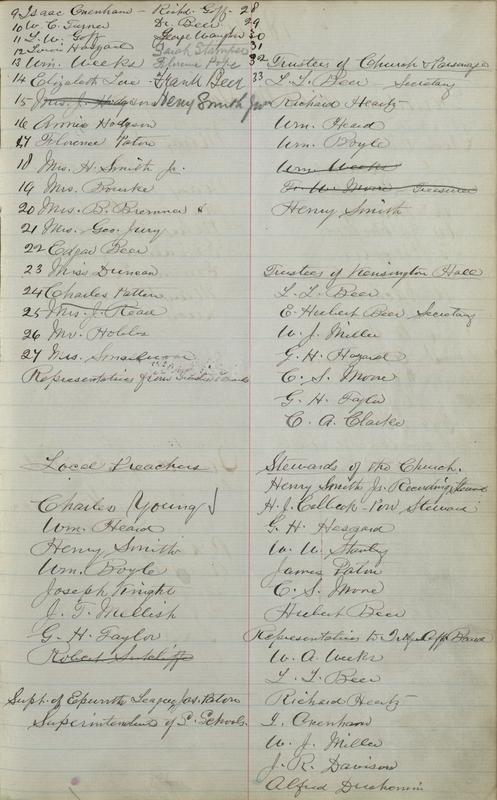 9 Isaac Oxenham - Richd. Goff - 28
10 W. C. Turner Dr. Beer 29
11 L. W. Goff George Vaughn 30
12 Lewis Haszard Sarah Stumper 31
13 Wm. Weeks Florence Pope 32
14 Elizabeth Lou - Frank Beer 33
15 Mrs. J. Hodgson Henry Smith Jr
16 Annie Hodgson
17 Florence Paton
18 Mrs. H. Smith Jr.
19 Mrs. Bourke
20 Mrs. B. Bremner
21 Mrs. Geo. Jury
22 Edgar Beer
23 Miss Duncan
24 Charles Patten
25 Mrs. J. Read
26 Mr. Hobbs
27 Mrs.
Representatives of
Local Preachers
Charles Young
Wm. Heard
Henry Smith
Wm. Boyle
Joseph Knight
J. T. Mellish
G. H. Taylor
Robert Sutcliffe
Supt. of Epworth League, Jas. Paton
Superintendent of S. Schools.
Trustees of Church & Parsonage
L. L. Beer Secretary
Richard Heartz
Wm. Heard
Wm. Boyle
Wm. Weeks
Treasurer
Henry Smith
Trustees of Kensington Hall
L. L. Beer
E. Hubert Beer Secretary
W. J. Miller
G. H. Hazard
C. S. Moore
G. H. Taylor
C. A. Clarke
Stewards of the Church.
Henry Smith Jr. Recording Steward
H. J. Steward
G. H. Haszard
W. W. Stanley
James Paton
C. S. Moore
Hubert Beer
Representatives to
W. A. Weeks
L. L. Beer
Richard Heartz
I. Oxenham
W. J. Miller
J. R. Davison
Alfred